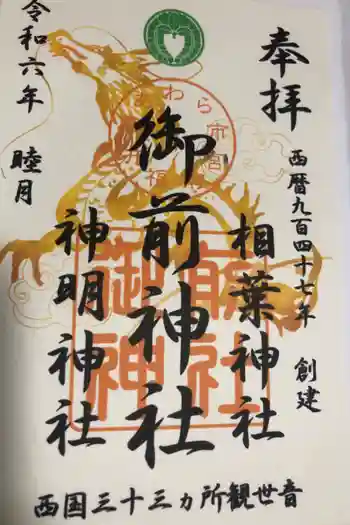 奉拝
西暦九百四十七年 創建
相葉神社
御前神社
神明神社
令和六年 睦月
西国三十三ヵ所観世音
御前
神社